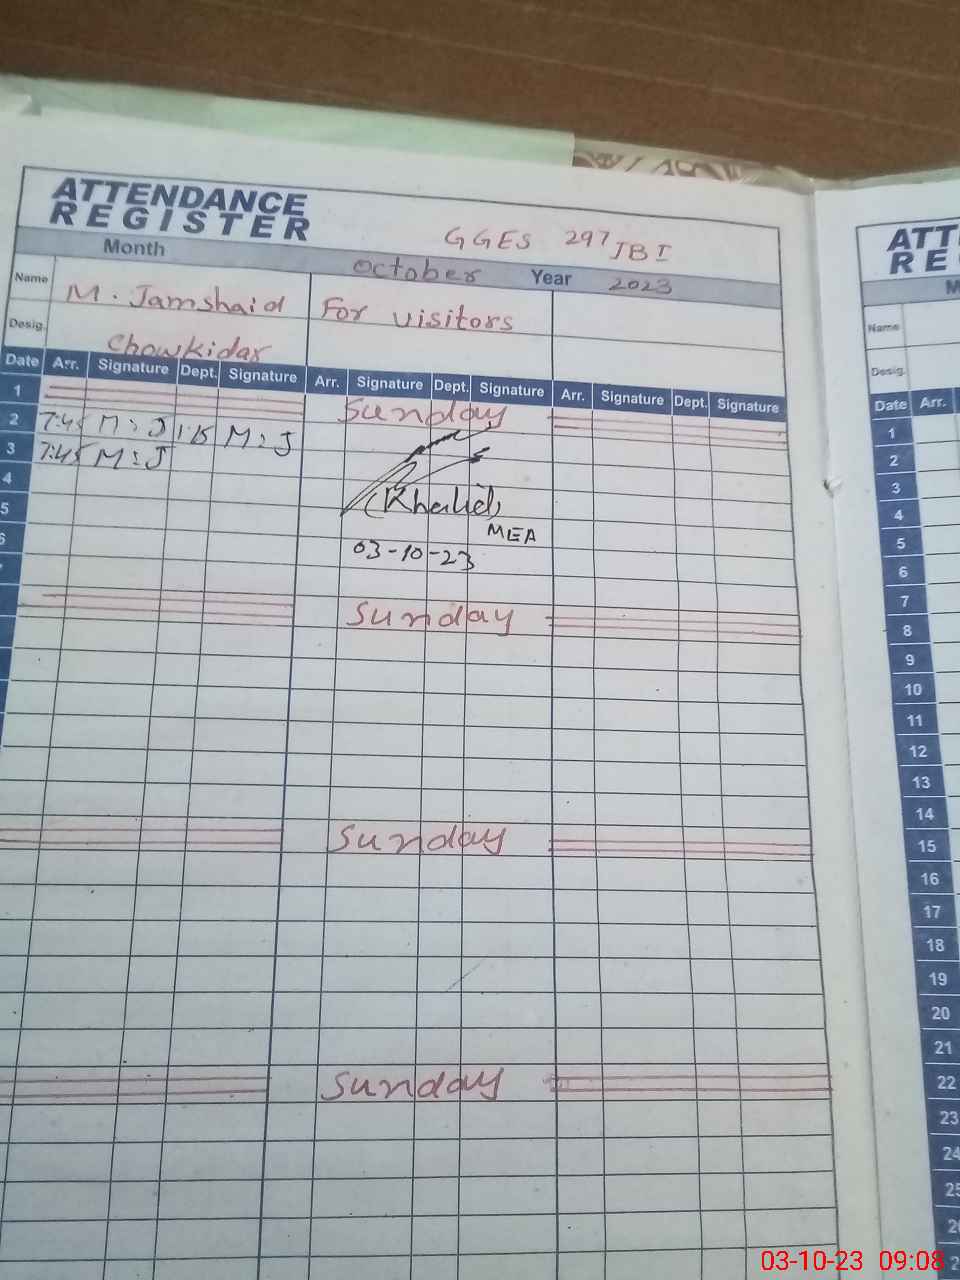 ATTENDANCE
REGISTER
GGES 297 JB I
Month October Year 2023
Name M. Jamshaid For visitors
Desig. Chowkidar
Date Arr. Signature Dept. Signature Arr. Signature Dept. Signature Arr. Signature Dept. Signature
1 Sunday
2 7:45 M:J 1:15 M:J
3 7:45 M:J
4
5 (Khalid)
6 MEA
03-10-23
Sunday
Sunday
Sunday
ATT
RE
M
Name
Desig.
Date Arr.
1
2
3
4
5
6
7
8
9
10
11
12
13
14
15
16
17
18
19
20
21
22
23
24
25
03-10-23 09:08